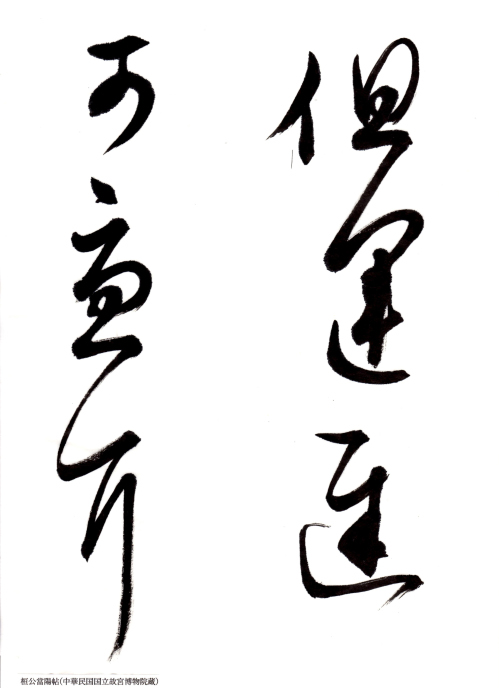 但運遲
可憂耳
桓公當陽帖(中華民国国立故宮博物院蔵)